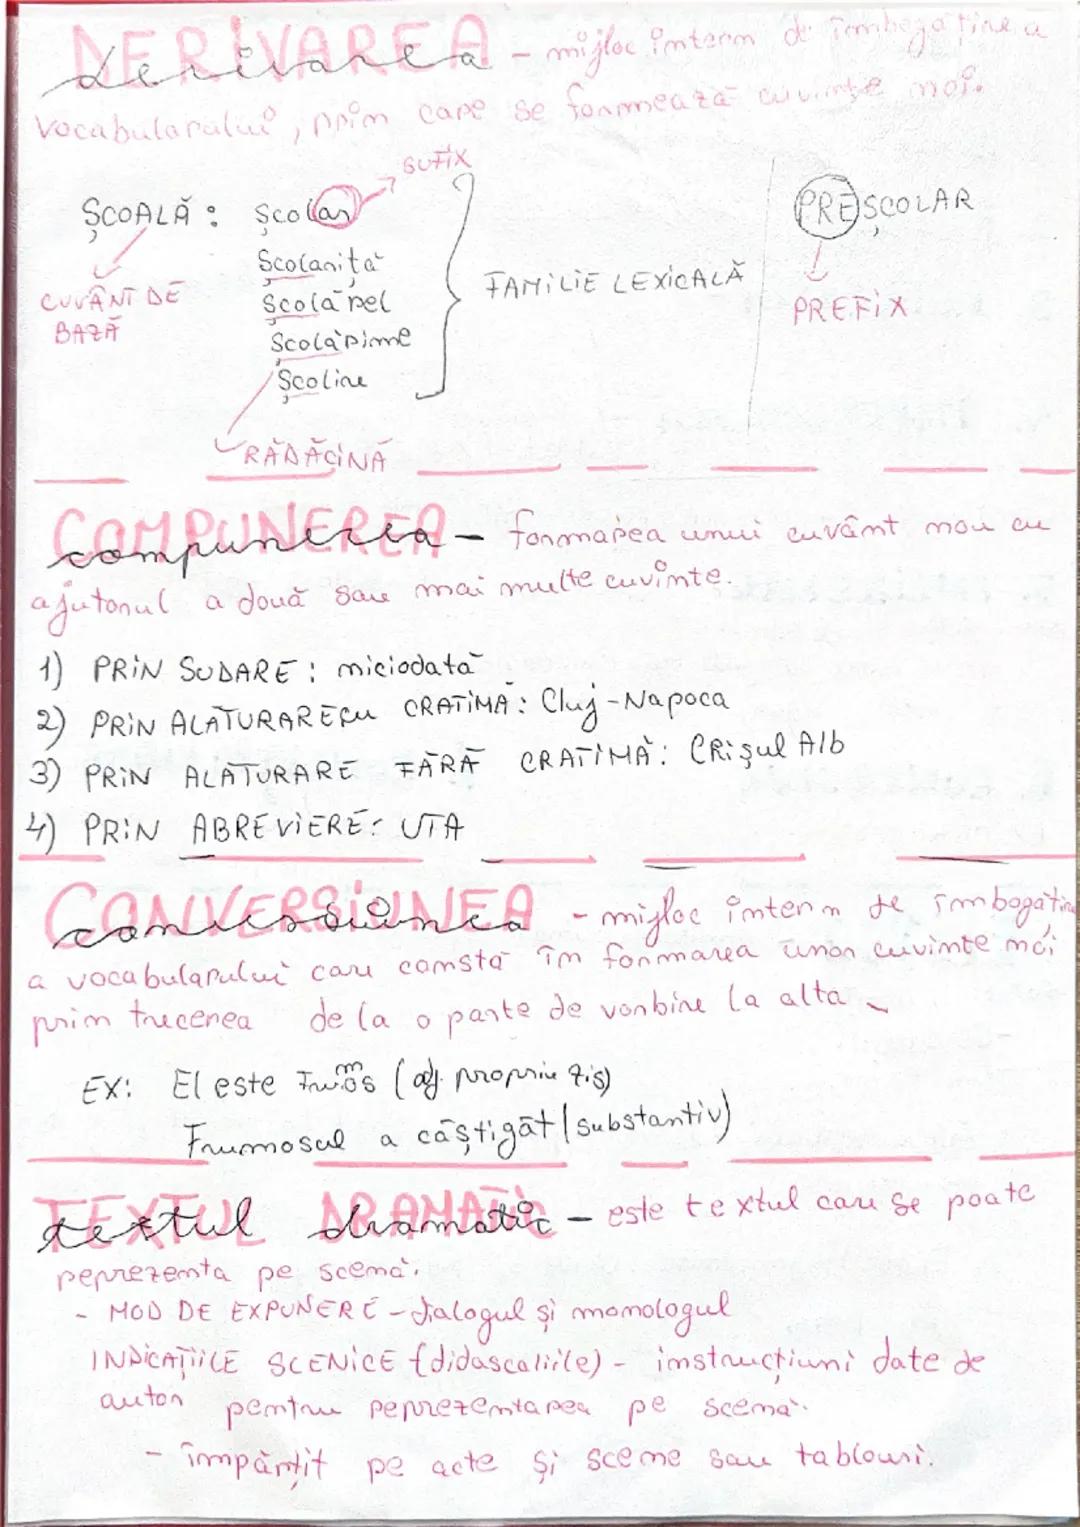 DERIVAREA - mijloc intern de îmbogățire a
derivarea
vocabularului, prin care se formează cuvinte noi.
ȘCOALĂ: școlar SUFIX PREȘCOLAR
școlăriță
CUVÂNT DE școlărel FAMILIE LEXICALĂ PREFIX
BAZĂ școlărime
școlire
RĂDĂCINĂ
COMPUNEREA
compunerea - formarea unui cuvânt nou cu
ajutorul a două sau mai multe cuvinte.
1) PRIN SUDARE: miciodată
2) PRIN ALĂTURARE cu CRATIMĂ: Cluj-Napoca
3) PRIN ALĂTURARE FĂRĂ CRATIMĂ: CRișul Alb
4) PRIN ABREVIERE: UTA
CONVERSIUNEA - mijloc intern de îmbogățire
conversiunea
a vocabularului care constă în formarea unor cuvinte noi
prin trecerea de la o parte de vorbire la alta
EX: El este Frumos (adj. propriu zis)
Frumosul a câștigat (substantiv)
TEXTUL DRAMATIC
textul dramatic - este textul care se poate
reprezenta pe scenă.
- MOD DE EXPUNERE - dialogul și monologul
INDICAȚIILE SCENICE (didascaliile) - instrucțiuni date de
autor pentru reprezentarea pe scenă.
- împărțit pe acte și scene sau tablouri.